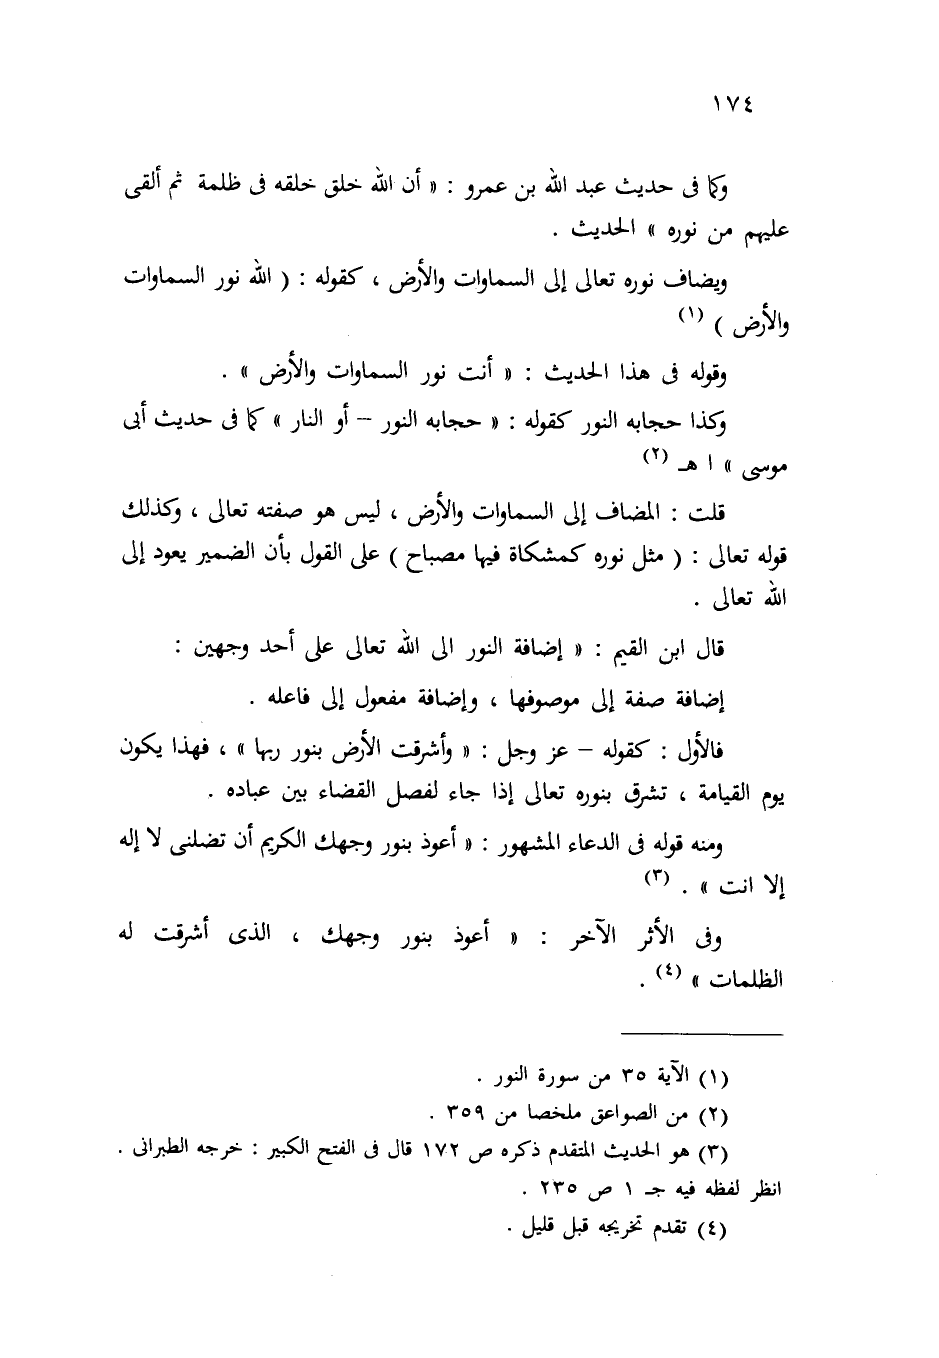 ١٧٤
وكما فى حديث عبد الله بن عمرو : « أن الله خلق خلقه فى ظلمة ثم ألقى
عليهم من نوره » الحديث .
ويضاف نوره تعالى إلى السماوات والأرض ، كقوله : ( الله نور السماوات
والأرض ) (١)
وقوله فى هذا الحديث : « أنت نور السماوات والأرض » .
وكذا حجابه النور كقوله : « حجابه النور – أو النار » كما فى حديث أبى
موسى » ا هـ (٢)
قلت : المضاف إلى السماوات والأرض ، ليس هو صفته تعالى ، وكذلك
قوله تعالى : ( مثل نوره كمشكاة فيها مصباح ) على القول بأن الضمير يعود إلى
الله تعالى .
قال ابن القيم : « إضافة النور الى الله تعالى على أحد وجهين :
إضافة صفة إلى موصوفها ، وإضافة مفعول إلى فاعله .
فالأول : كقوله – عز وجل : « وأشرقت الأرض بنور ربها » ، فهذا يكون
يوم القيامة ، تشرق بنوره تعالى إذا جاء لفصل القضاء بين عباده .
ومنه قوله فى الدعاء المشهور : « أعوذ بنور وجهك الكريم أن تضلنى لا إله
إلا انت » . (٣)
وفى الأثر الآخر : « أعوذ بنور وجهك ، الذى أشرقت له
الظلمات » (٤) .
(١) الآية ٣٥ من سورة النور .
(٢) من الصواعق ملخصا من ٣٥٩ .
(٣) هو الحديث المتقدم ذكره ص ١٧٢ قال فى الفتح الكبير : خرجه الطبرانى .
انظر لفظه فيه جـ ١ ص ٢٣٥ .
(٤) تقدم تخريجه قبل قليل .